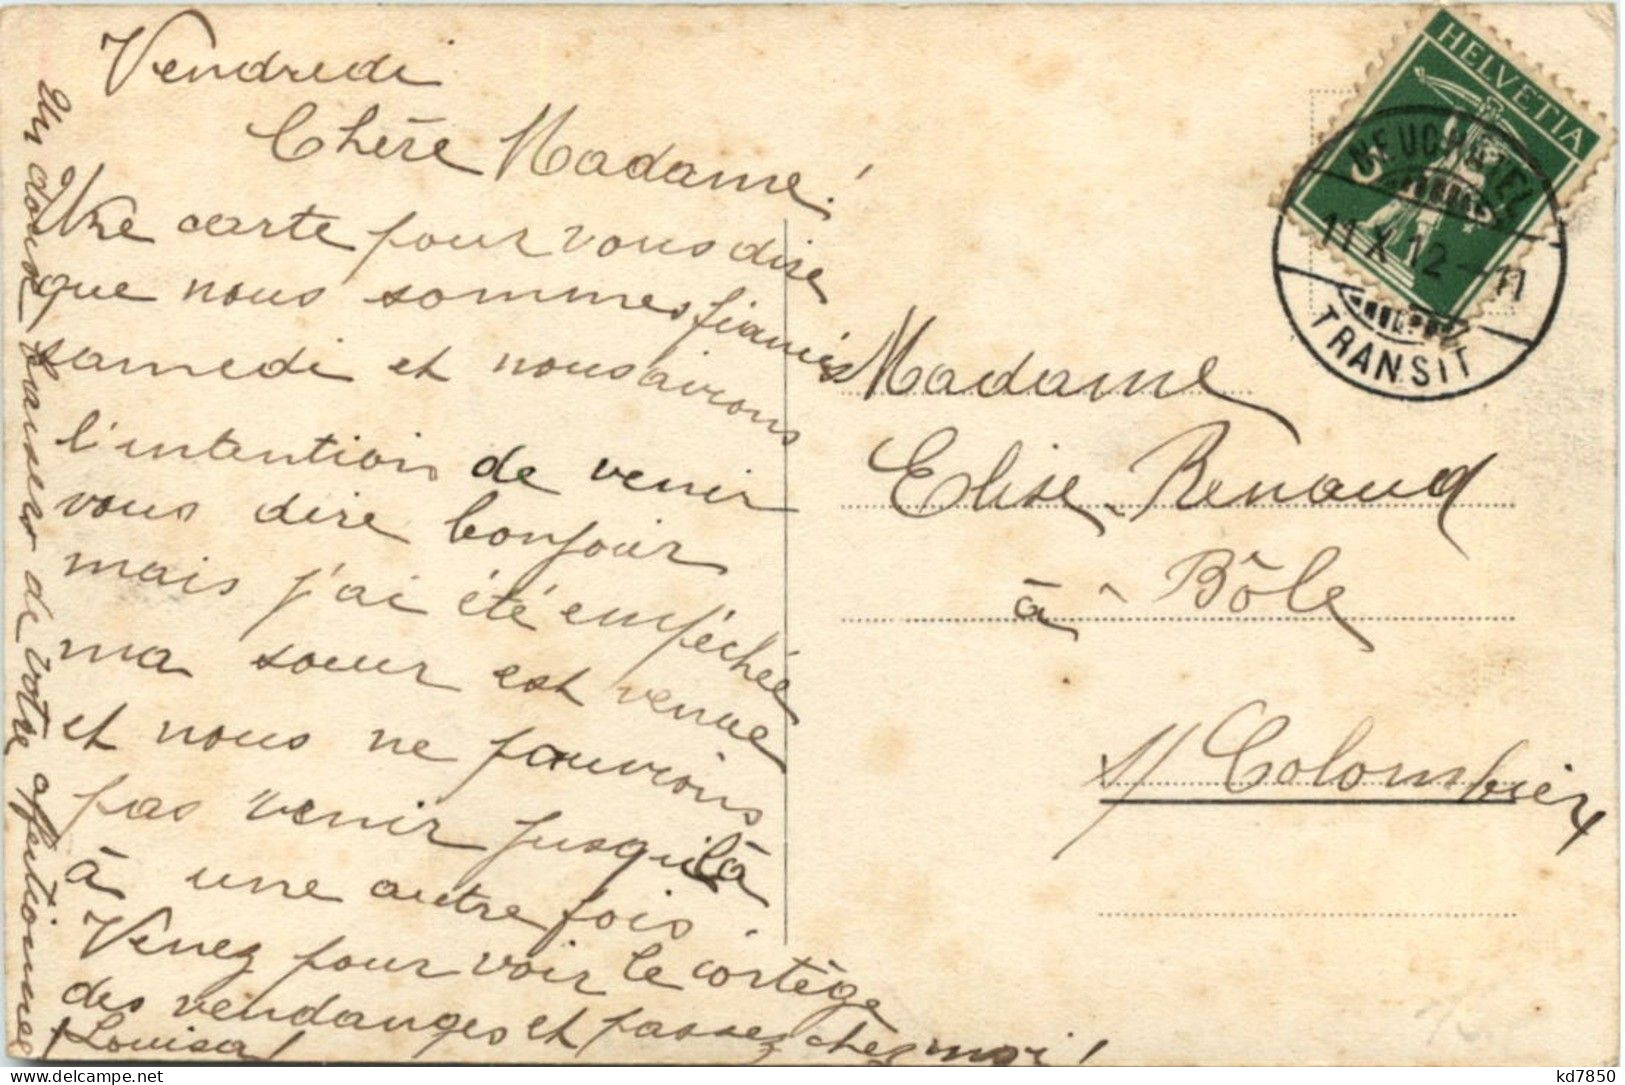 Vendredi
Chère Madame!
Une carte pour vous dire
que nous sommes fiancés
samedi et nous avions
l'intention de venir
vous dire bonjour
mais j'ai été empêchée
ma soeur est venue
et nous ne pouvions
pas venir jusqu'là
à une autre fois.
Venez pour voir le cortège
des vendanges et passez chez moi!
Un doux baiser de votre affectionnée
Louisa!
HELVETIA
5
NEUCHATEL
11.X.12-11
TRANSIT
Madame
Elise Renaud
à Bôle
s/ Colombier
delcampe.net
kd7850